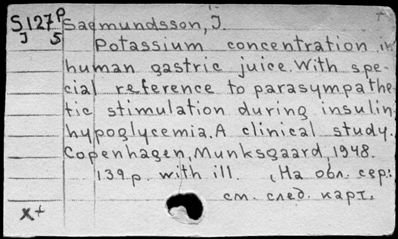 S127P Saemundsson, J.
J 5
Potassium concentration in
human gastric juice. With spe-
cial reference to parasympathe
tic stimulation during insulin
hypoglycemia. A clinical study.
Copenhagen, Munksgaard, 1948.
139 p. with ill. (На обл. сер:
см. след. карт.
x+